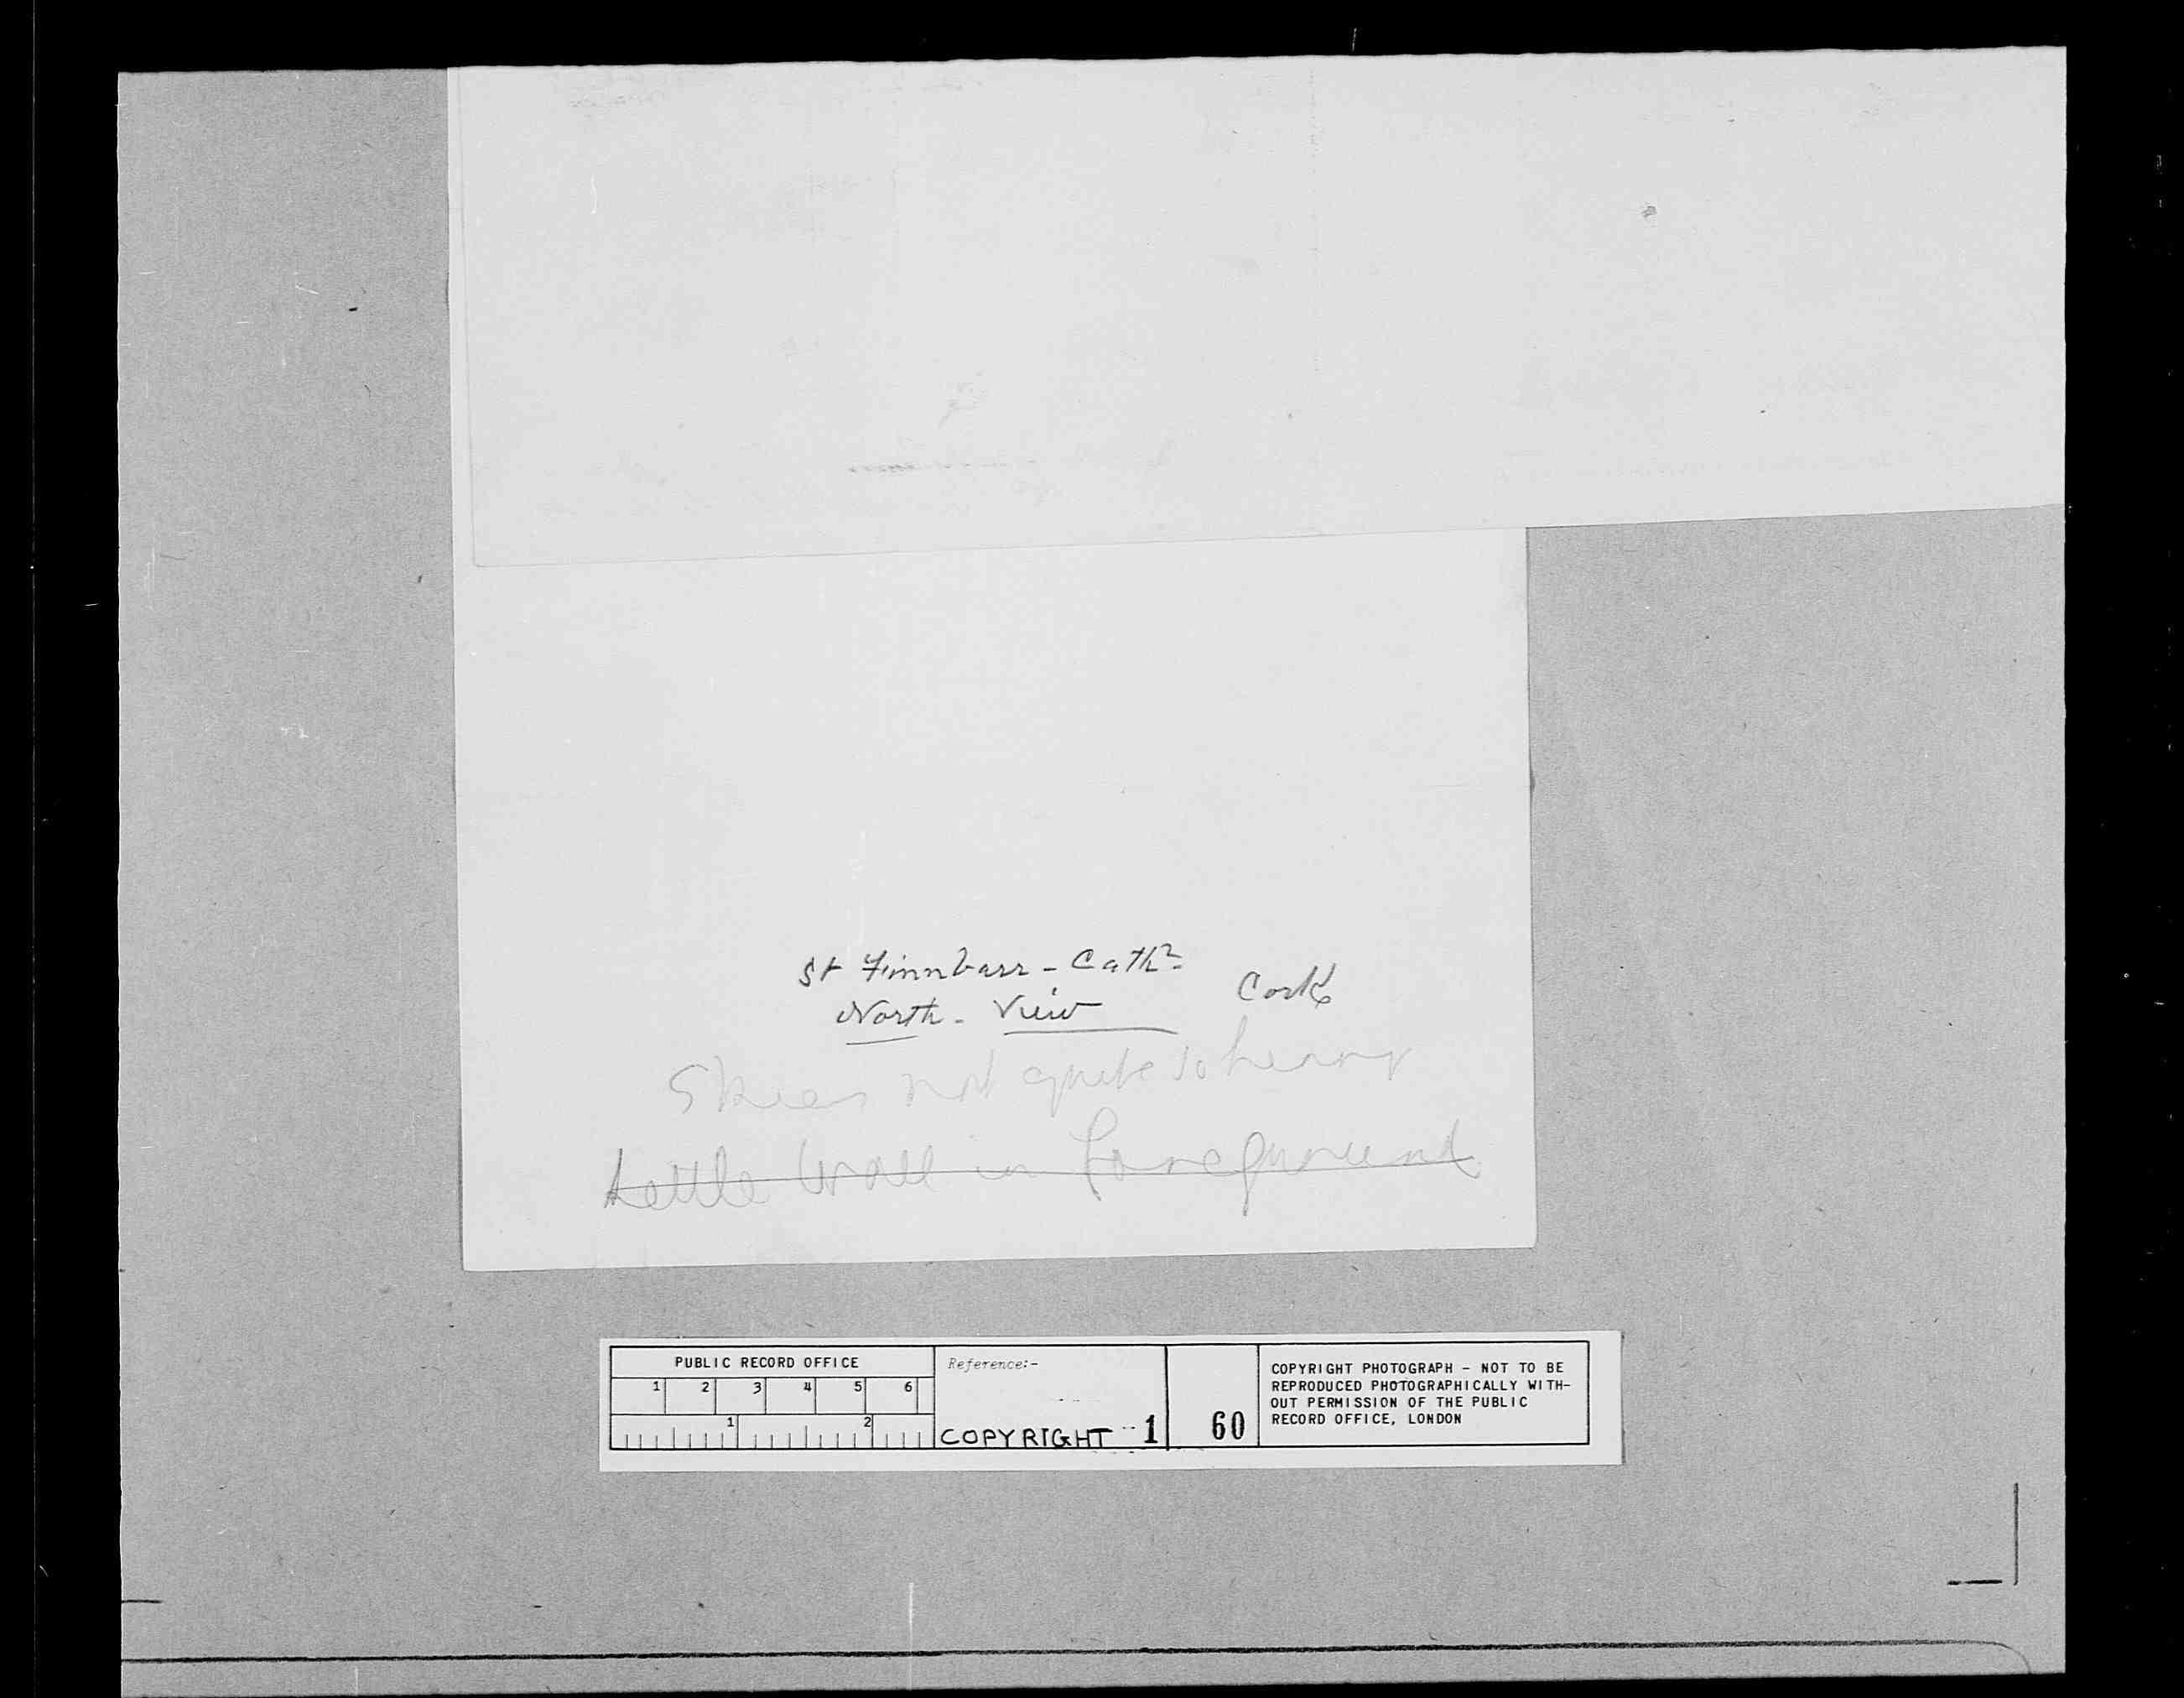 St Finnbarr - Cath
Cork
North - View
Skies not quite so heavy
Little Wall in foreground
PUBLIC RECORD OFFICE
1 2 3 4 5 6
1 2
Reference:-
COPYRIGHT 1
60
COPYRIGHT PHOTOGRAPH - NOT TO BE
REPRODUCED PHOTOGRAPHICALLY WITH-
OUT PERMISSION OF THE PUBLIC
RECORD OFFICE, LONDON